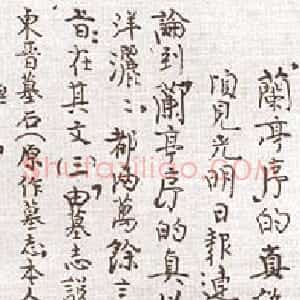 蘭亭序的真
頃見光明日報連
論到「蘭亭序的真
洋灑〻都兩萬餘言
旨在其文(三)由墓志說
東晉墓石(原作墓志,本
shufaziliao.COM